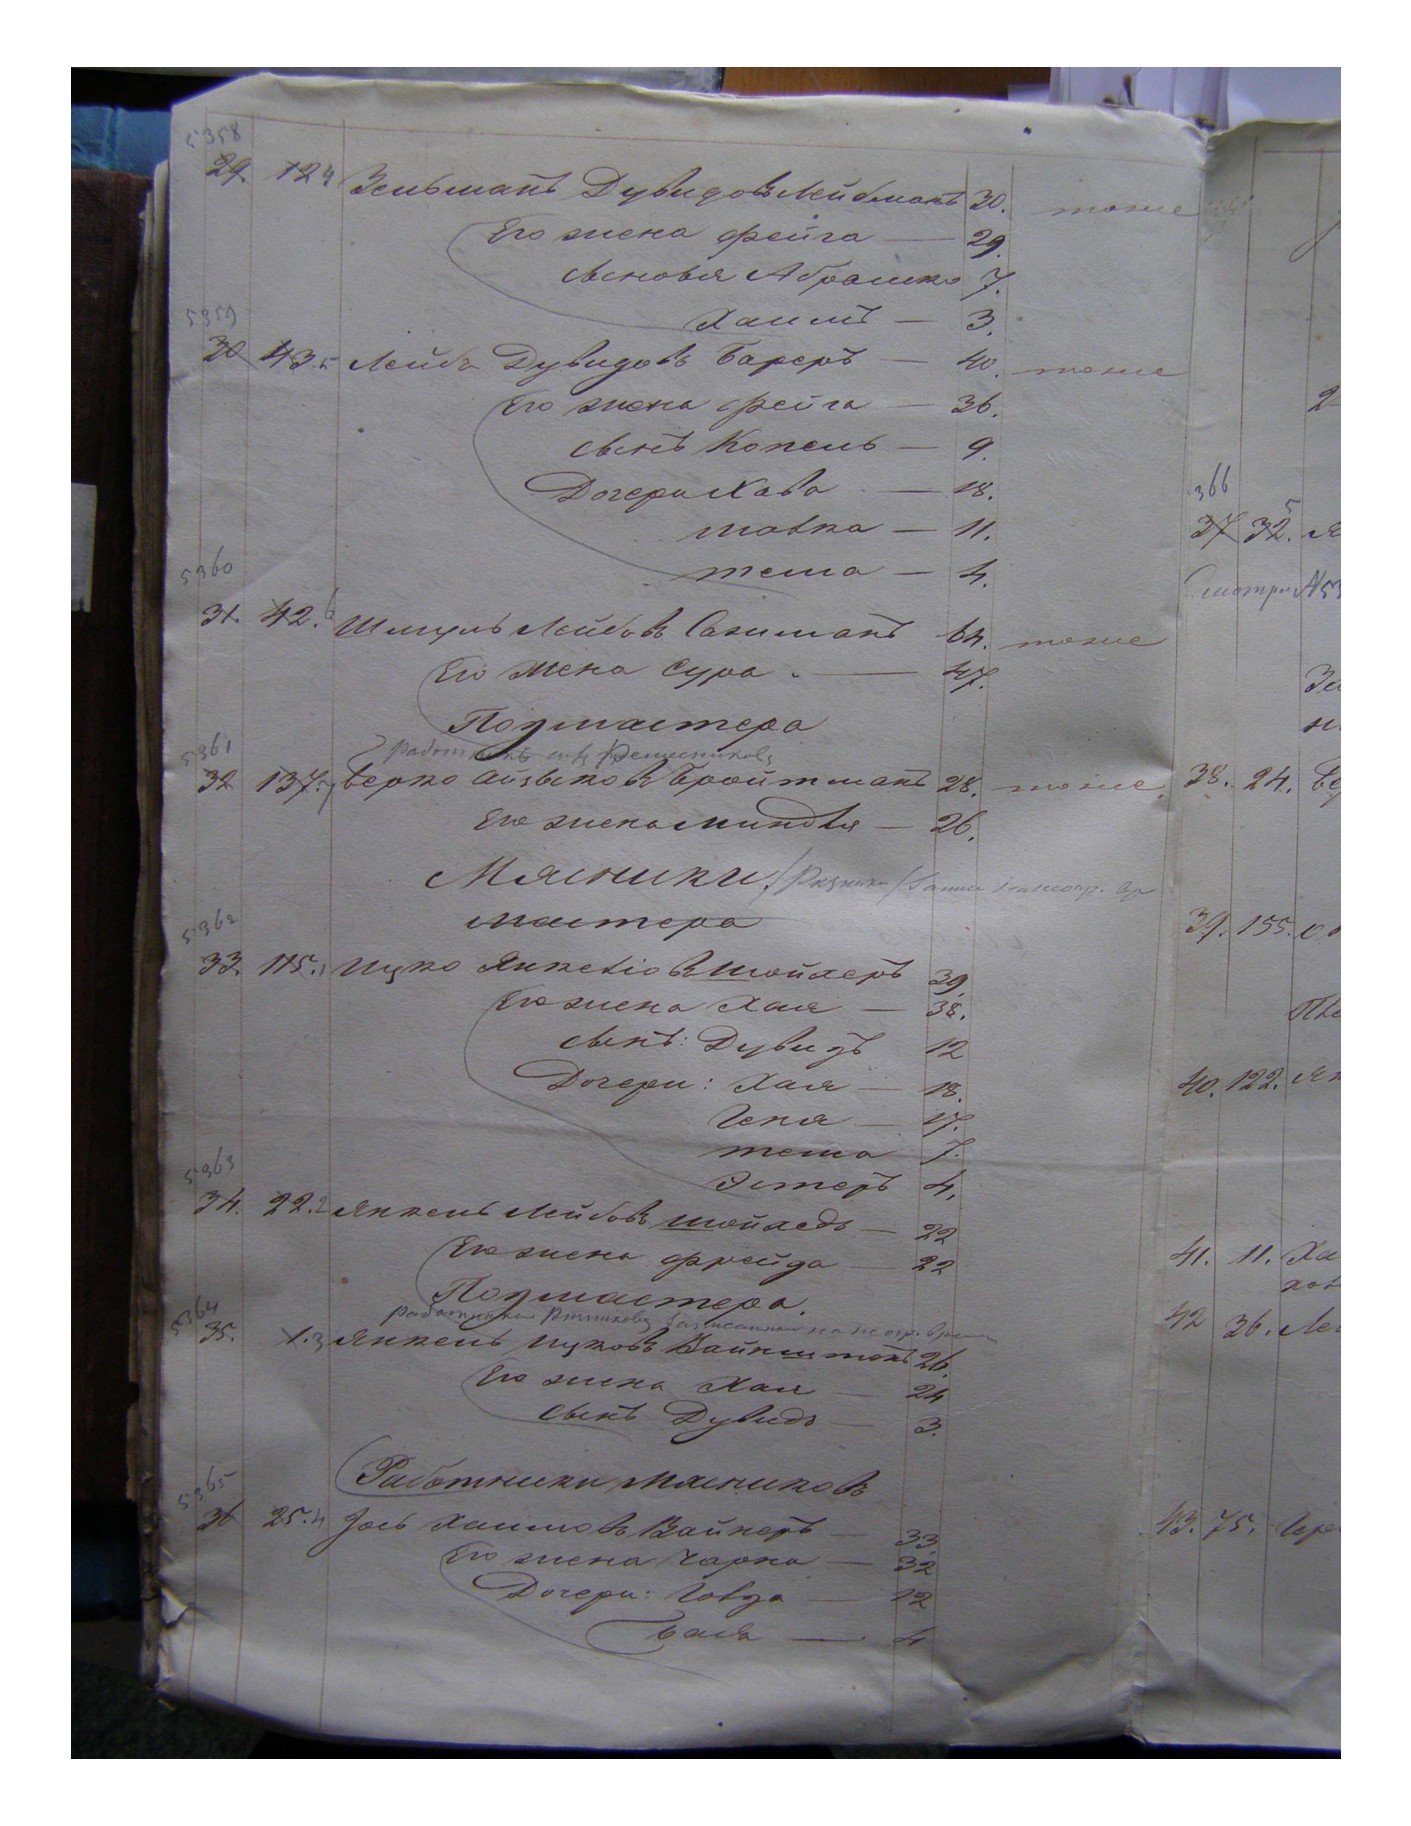 5358
29. 124 Зельманъ Дувидовъ Лейбманъ 30. тоже
Его жена Фейга — 29.
Сыновья Абрамко 7.
Хаимъ — 3.
5359
30 43. Лейба Дувидовъ Бареръ — 40. тоже
Его жена Фейга — 36.
Сынъ Копель — 9.
Дочери Хава — 18.
Шовка — 11.
Теша — 4.
5360
31. 42. 6 Шмуль Лейбовъ Сахиманъ 64. тоже
Его жена Сура. — 47.
Подмастера
5361
32 137. 7 Берко Айзыковъ Бройтманъ 28. тоже.
Его жена Миндля — 26.
Мясники /Рѣзники/
мастера
5362
33. 115. 1 Ицко Янкелiовъ Шойхетъ 39.
Его жена Хая — 38.
Сынъ: Дувидъ 12
Дочери: Хая — 18.
Геня — 17.
Теша 7.
Эстеръ 4.
5363
34. 22. 2 Янкель Лейбовъ Шойхедъ — 22
Его жена Фрейда — 22
Подмастера.
5364
35. 1. 3 Янкель Ицковъ Вайнштокъ 26.
Его жена Хая — 24
Сынъ Дувидъ — 3.
Работники Мясниковъ
5365
36 25. 4 Іось Хаимовъ Вайнеръ — 33.
Его жена Чарна — 32
Дочери: Говда — 12
Бася — 4
366
37 32. 5
Смотри №53
38. 24.
39. 155.
40. 122.
41. 11. Ха
42 26. Ле
43. 75.